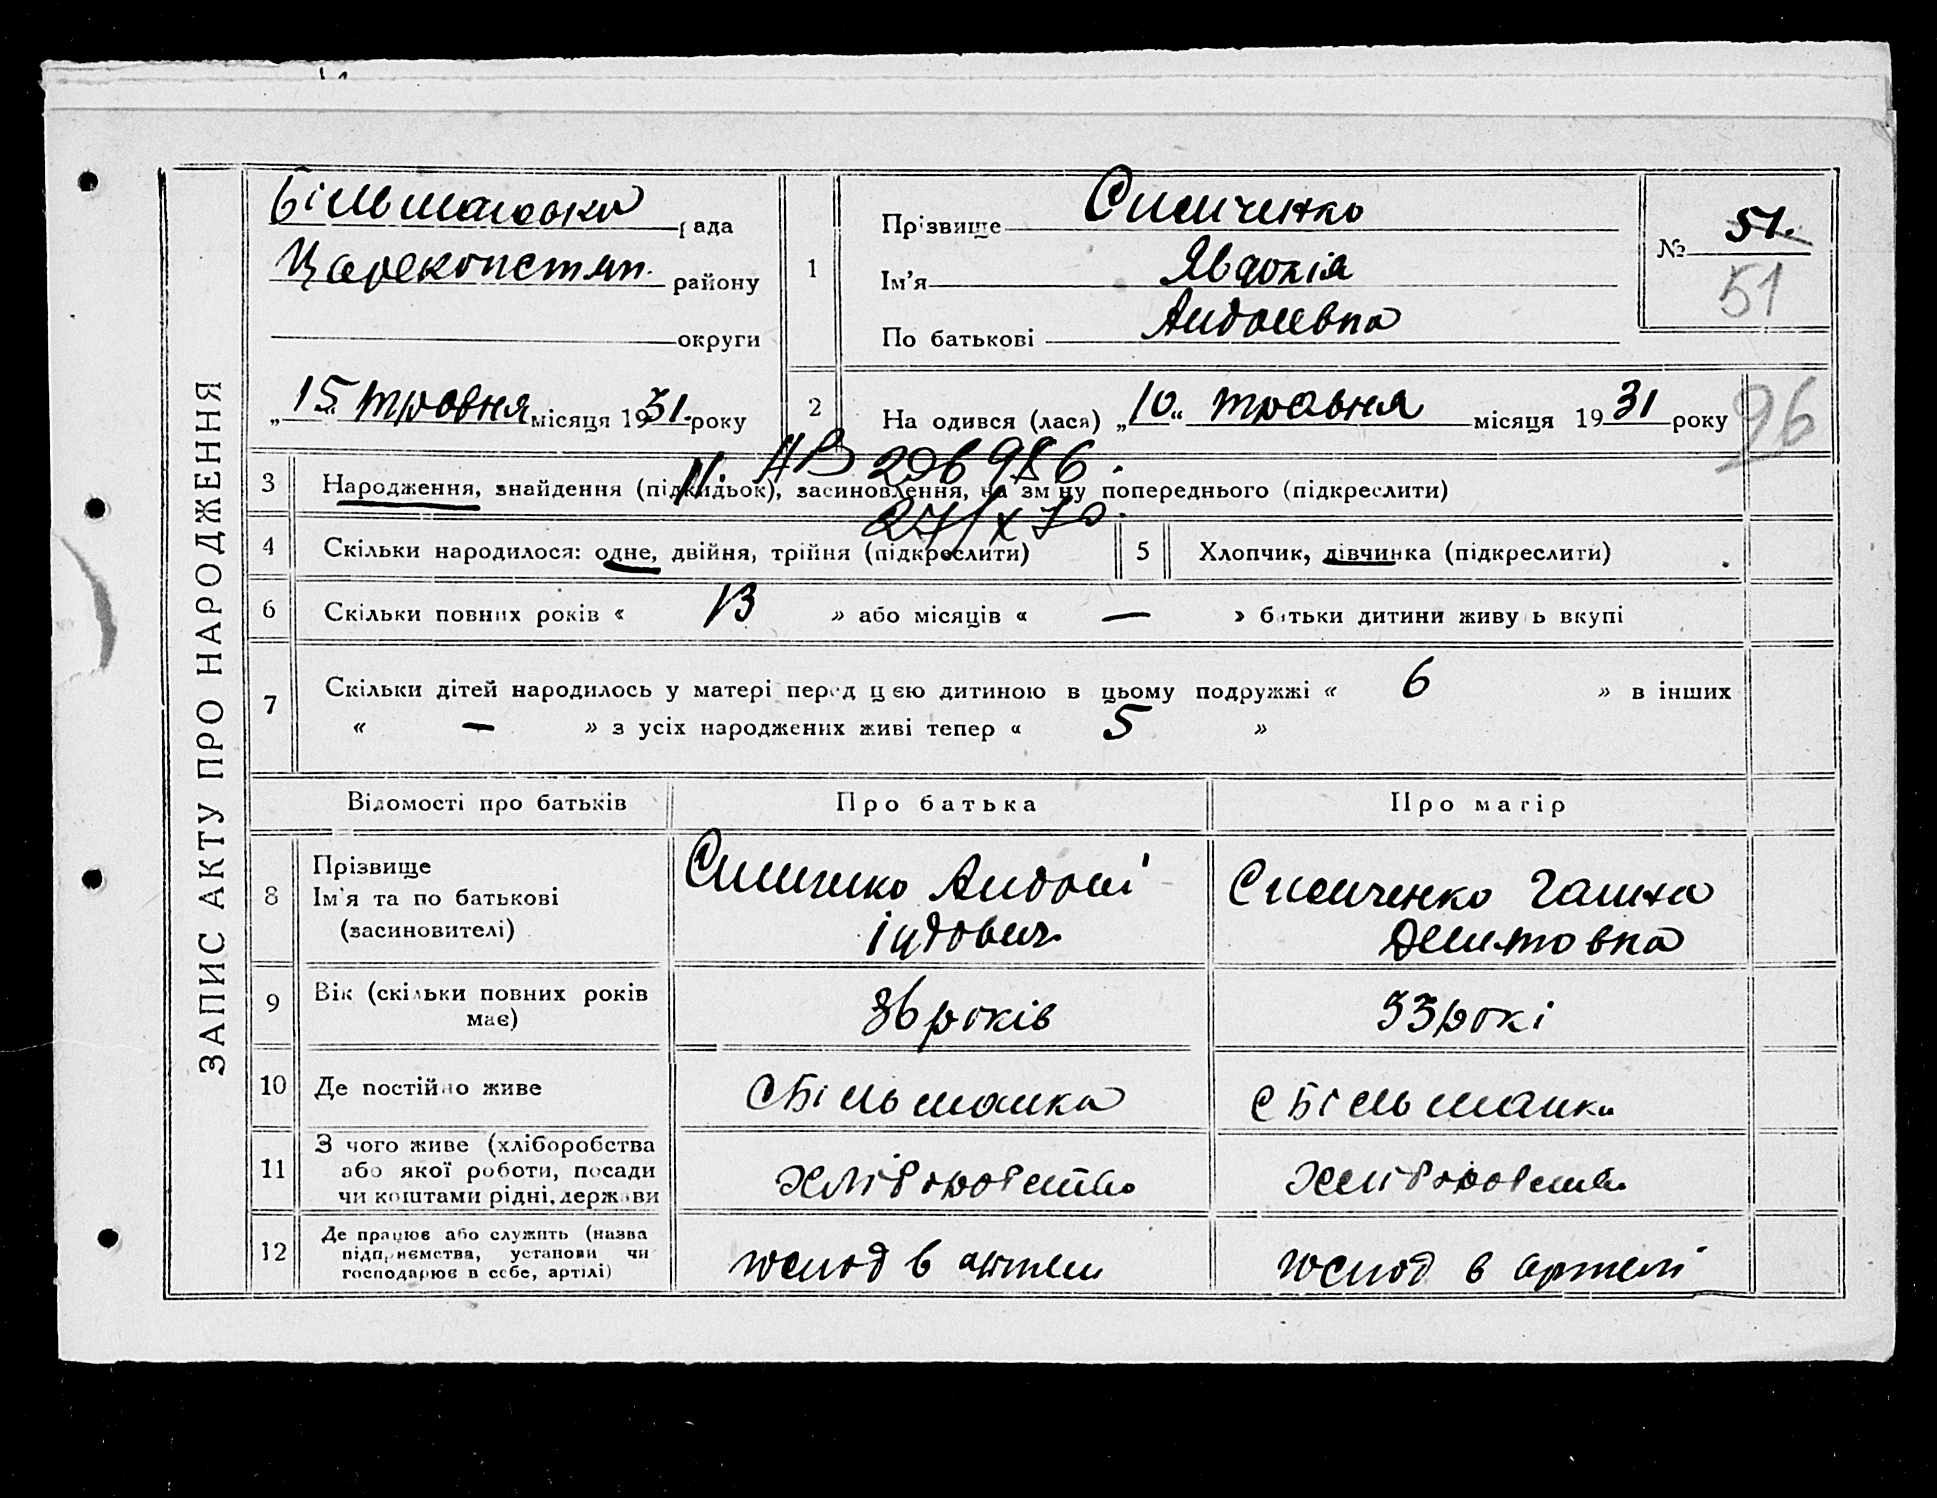 ЗАПИС АКТУ ПРО НАРОДЖЕННЯ
Більманська рада
Царекопстян. району
округи
„15“ травня місяця 1931. року
1
Прізвище Сисиченко
Ім'я Явдокія
По батькові Андрієвна
№ 51.
51
2
На одився (лася) „10“ травня місяця 1931 року
96
II. АВ 206986.
3 Народження, знайдення (підкидьок), засиновлення, на зм ну попереднього (підкреслити)
27/X 70.
4 Скільки народилося: одне, двійня, трійня (підкреслити)
5 Хлопчик, дівчинка (підкреслити)
6 Скільки повних років « 13 » або місяців « — » батьки дитини живу ь вкупі
7 Скільки дітей народилось у матері перед цією дитиною в цьому подружжі « 6 » в інших
« — » з усіх народжених живі тепер « 5 »
Відомості про батьків
Про батька
Про матір
8 Прізвище
Ім'я та по батькові
(засиновителі)
Сисиченко
Сисиченко Ганна
9 Вік (скільки повних років
має)
36 років
33 рокі
10 Де постійно живе
с Більманка
с Більманка
11 З чого живе (хліборобства
або якої роботи, посади
чи коштами рідні, держави
хліборобство
хліборобство
12 Де працює або служить (назва
підприємства, установи чи
господарює в себе, артілі)
в артелі
в артелі